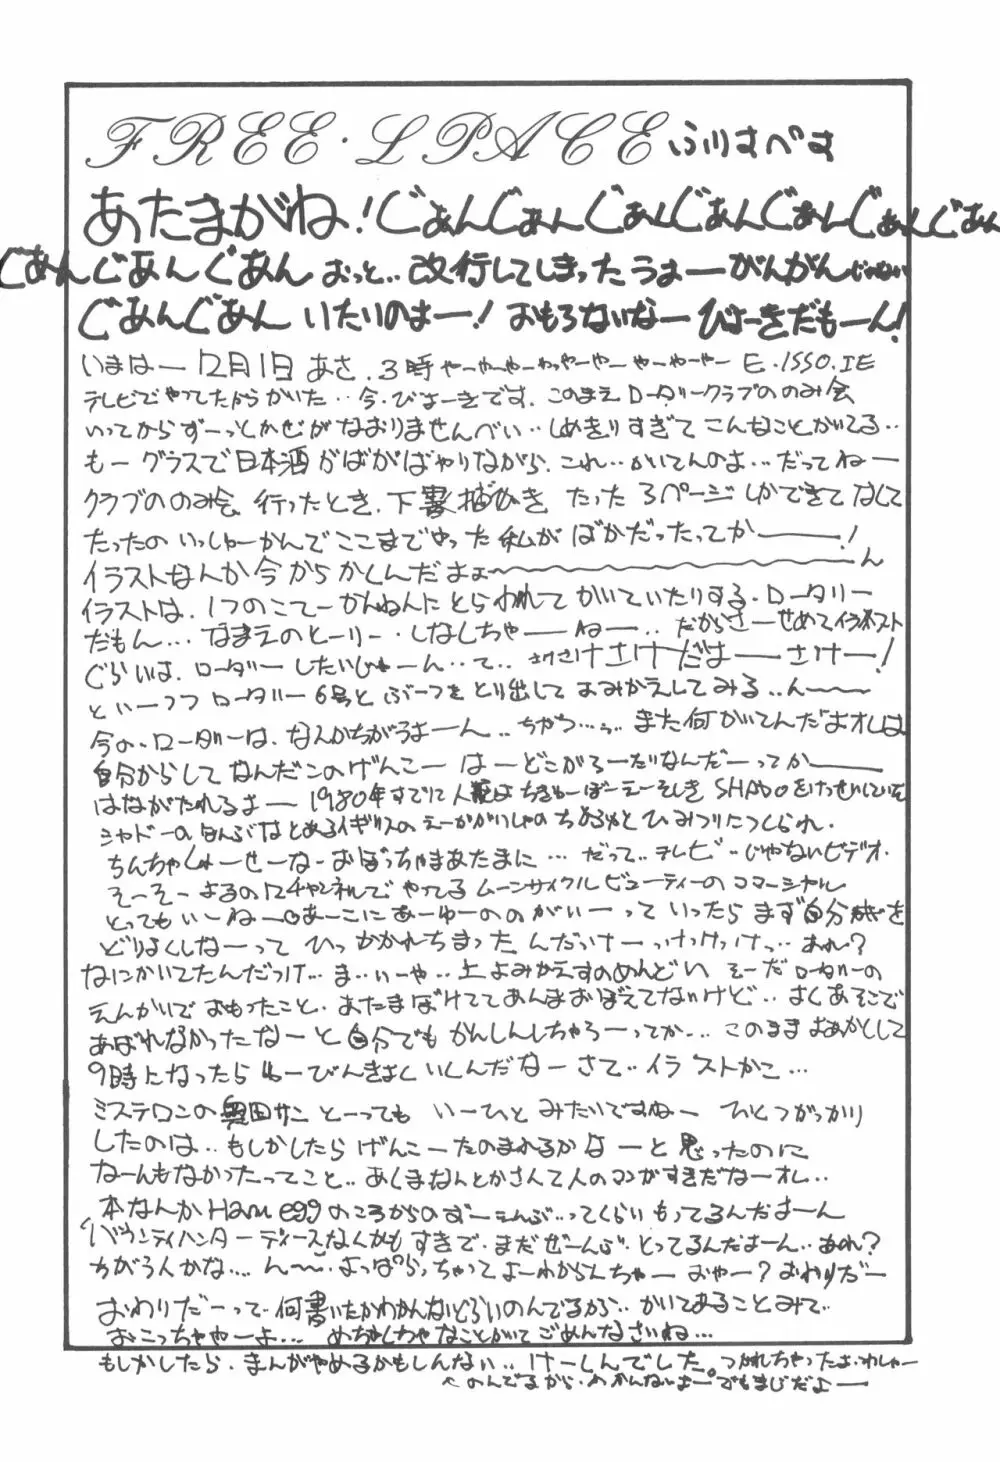 FREE・LPACE ふりすぺす
あたまがね!ぐぁんぐぁんぐぁんぐぁんぐぁんぐぁんぐあん
ぐあんぐあんぐあん おっと‥改行してしまった うぁーがんがんじゃない
ぐあんぐあん いたいのよー!おもろないなー びょーきだもーん!
いまはー 12月1日 あさ.3時 やーやーやーわっやーやー やーやーやー E.ISSO.IE
テレビでやってたからかいた‥今.びょーきです.このまえ ローダークラブののみ会
いってからずーっとかぜがなおりませんべい‥しめきりすぎて こんなことかいてる‥
もーグラスで日本酒がばがばやりながら.これ‥かいてんのよ…だってねー
クラブののみ会 行ったとき.下書 たった3ページしかできてなして
たったの いっしゅーかんでここまでやった私が ばかだったってかー!
イラストなんか今からかくんだよぉ〜ん
イラストは.1つのこてーかんねんにとらわれて かいていたりする.ロータリー
だもん…なまえのとーりー.しなしちゃーねー‥だからさーせめてイラスト
ぐらいは.ローダーしたいひゅーん‥て‥さけさけさけだよーさけー!
といーつつ ローダー6号と ぶーつをとり出して よみかえしてみる‥ん〜
今の.ローダーは.なんかちがうよーん‥ちがう…また何かいてんだよオレは
自分からして なんだこのげんこー はーどこがろーだりなんだーってかー
はながたれるよー 1980年すでに人るいはちきゅーぼーえーそしき SHADOをけっせいしていた
シャドーのほんぶはとあるイギリスのえーがかいしゃのちかふかくひみつりにつくられ.
ちんちゃしょーせーなーおぼっちゃまあたまに…だって‥テレビ‥じゃないビデオ.
そーそーよるの12チャンネルで やってる ムーンサイクルビューティーのコマーシャル
とってもいーねー あーこにあーゆーののがいーって いったら まず自分を
どりょくしなーって ひっかかれちまったんだっけーっけっけっけっ‥あれ?
なにかいてたんだっけ…ま‥いーや‥上よみかえすのめんどい そーだ ローダーの
えんかいで おもったこと.あたまぼけててあんまおぼえてないけど‥よくあそこで
あばれなかったなーと自分でも かんしんしちゃろーってか…このまま よあかしして
9時になったら ゆーびんきょくいくんだなーさて‥イラストかこ…
ミステロンの奥田サン とーっても いーひと みたいですねー ひとつがっかり
したのは‥もしかしたら げんこーたのまれるかなーと思ったのに
なーんもなかったってこと‥あくまなんとかさんて人のマンがすきだなーオレ‥
本なんか Ham eggのころからのずーえんぶ‥ってくらい もってるんだよーん
バウンティハンターディースなんかもすきで.まだぜーんぶ.とってるんだよーん‥あれ?
ちがう人かな…ん〜.よっぱらっちゃってよーわからんちゃー おやー?おわりだー
おわりだーって.何書いたかわかんないくらいのんでるから‥かいてあることみて‥
おこっちゃやーよ…めちゃくちゃなことかいて ごめんなさいね…
もしかしたら.まんがやめるかもしんない‥けーしんでした。つかれちゃったよ.わしゃー
へのんでるから.わかんないよーでもまじだよー